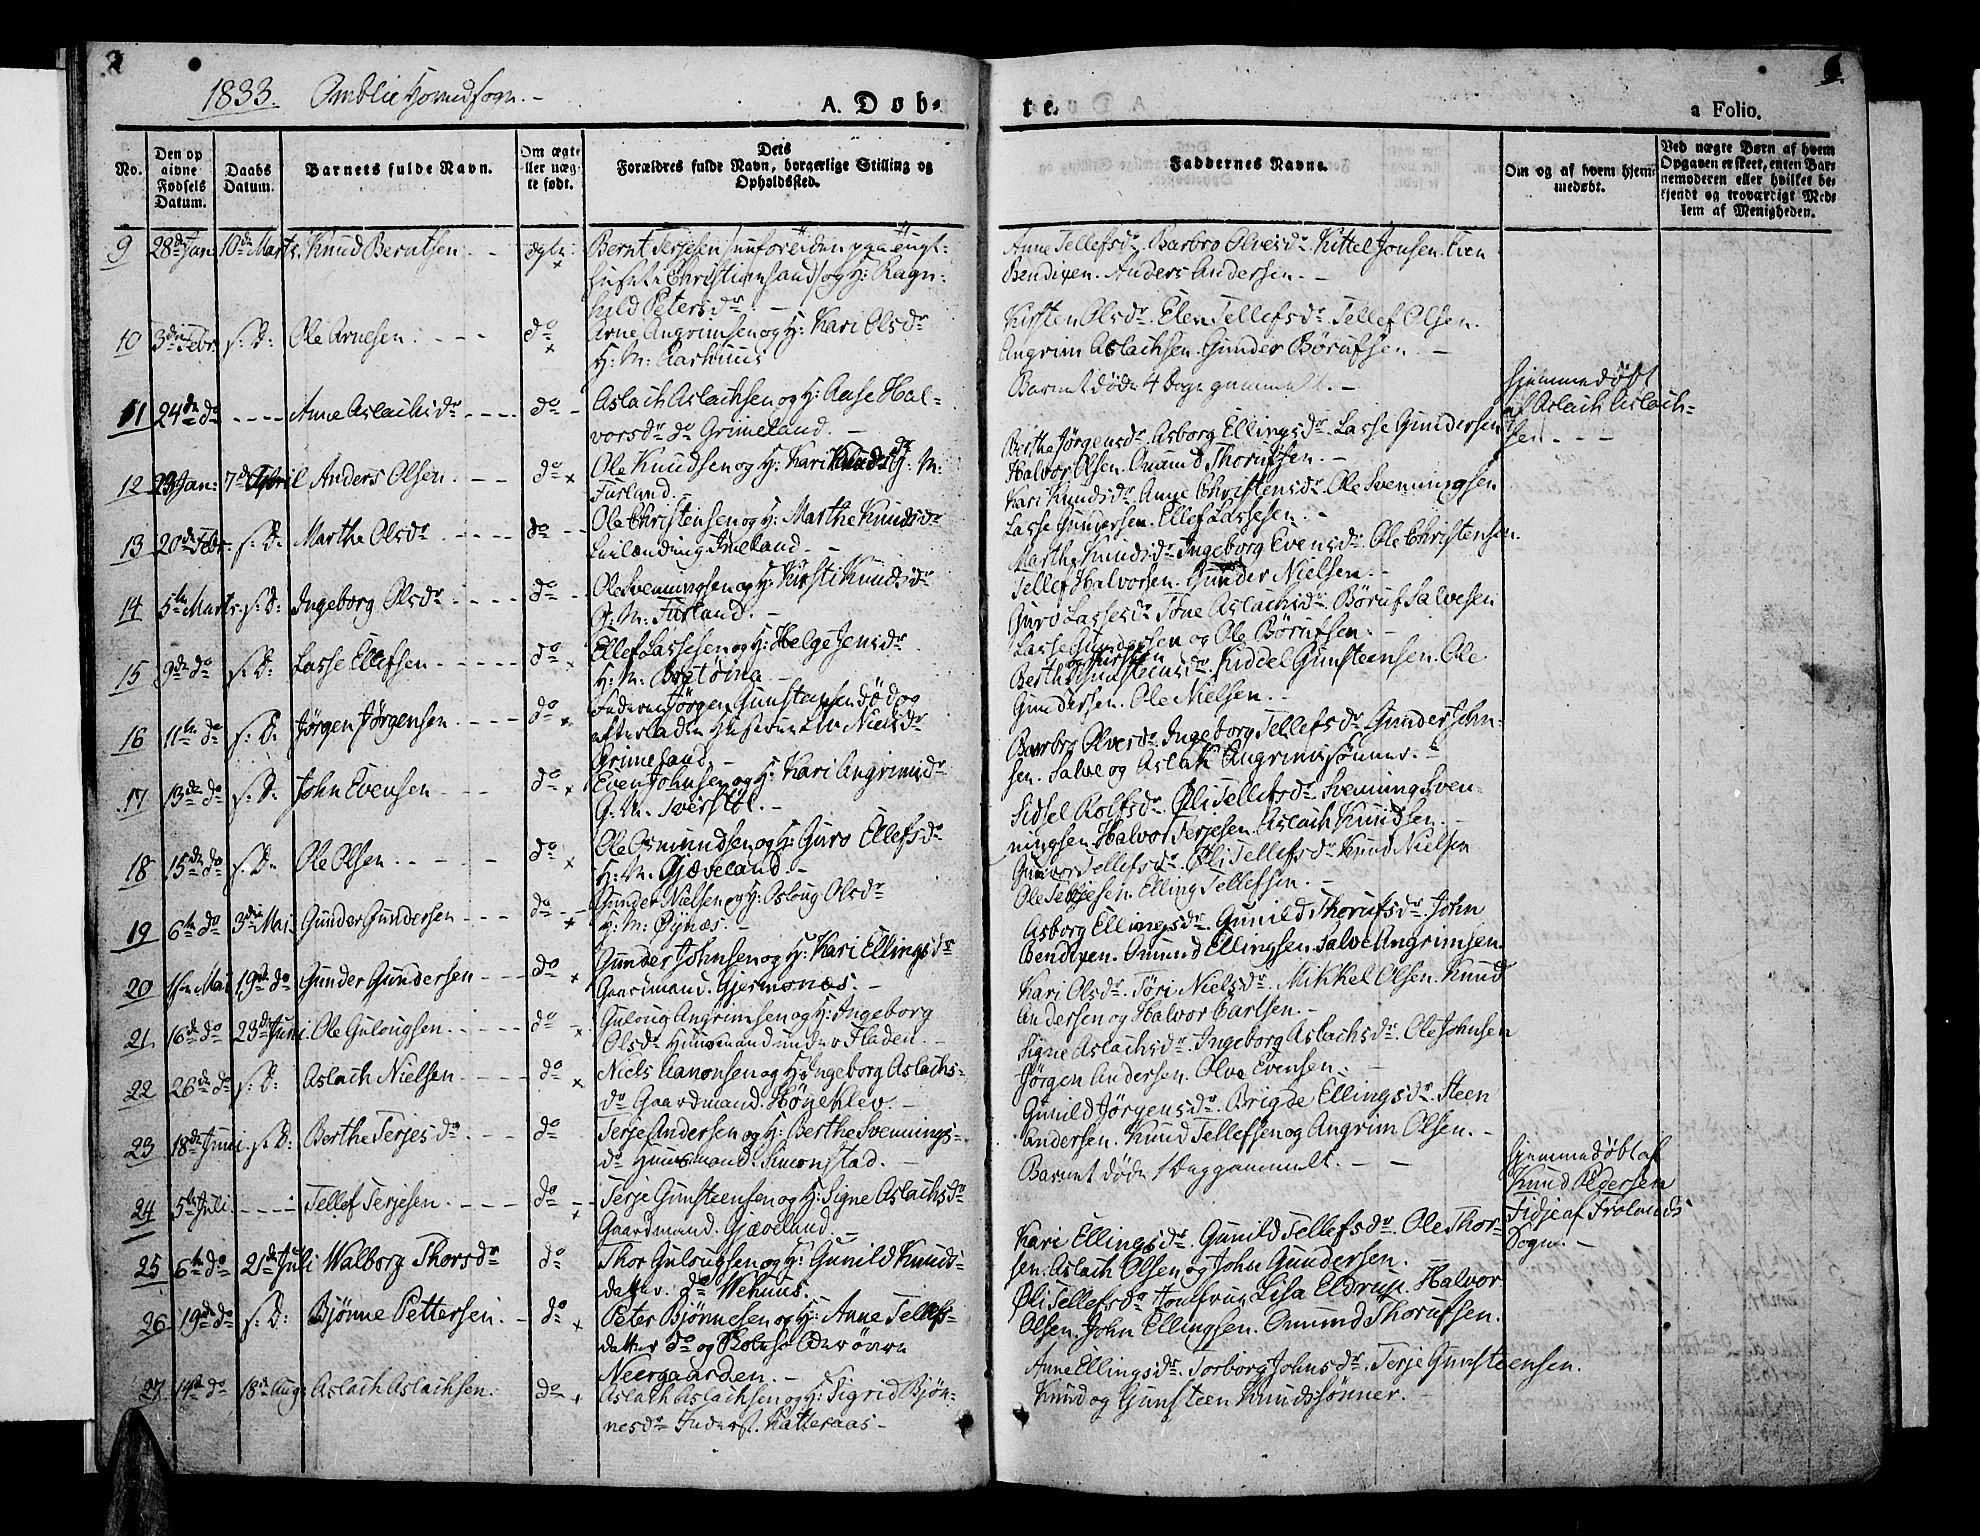 1833. Omblie Hovedsogn. -
A. Døb-
te.
a Folio.
No.
Den op
givne
Fødsels
Datum.
Daabs
Datum.
Barnets fulde Navn.
Om ægte
eller uæg-
te født.
Dets
Forældres fulde Navn, borgerlige Stilling og
Opholdssted.
Faddernes Navne.
Om og af hvem hjem-
medøbt.
Ved uægte Børn af hvem
Opgaven er skeet, enten Bar-
nemoderen eller hvilket be-
kjendt og troværdigt Med-
lem af Menigheden.
9 28de Jan: 10de Marts. Knud Berntsen - - ægte Bernt Terjesen
Christiansand) og H: Ragn-
hild Peters dr. -
Anne Tellefsdr. Barbro Olvesdr. Kittel Jonsen. Even
Bendixen. Anders Andersen. -
10 3die Febr. s: D: Ole Arnesen. - - - do Arne Angrimsen og H: Kari Olsdr
H: M: Aashuus
Kirsten Olsdr. Elen Tellefsdr. Tellef Olsen.
Angrim Aslachsen. Gunder Børufsen. -
11 24de do - - - - Anne Aslachsdr - - - - do - Aslach Aslachsen og H: Aase Hal-
vorsdr do Grimeland. -
Barnet døde 4 Dage gammelt. -
Hjemmedøbt
af Aslach Aslach-
sen. - - -
12 23 Jan: 7de April Anders Olsen. - - do Ole Knudsen og H: Kari Knudsdr G. M:
Furland. -
Berthe Jørgensdr. Asborg Ellingsdr. Lasse Gundersen
Halvor Olsen. Omund Thorufsen. -
13 20de Febr. s: D: Marthe Olsdr - - - - do - - Ole Christensen og H: Marthe Knudsdr
Leilænding Imeland. -
Kari Knudsdr. Anne Christensdr. Ole Svenningsen
Lasse Gundersen. Ellef Lassesen. -
14 5te Marts. s: D: Ingeborg Olsdr. - - - - do - - Ole Svenningsen og H: Kirsti Knudsdr
G: M: Furland. -
Marthe Knudsdr. Ingeborg Evensdr. Ole Christensen.
Tellef Halvorsen. Gunder Nielsen. -
15 9de do s: D: Lasse Ellefsen - - - - - do Ellef Lassesen og H: Helge Jensdr
H: M:
Guro Lassesdr. Tone Aslachsdr. Børuf Salvesen
Lasse Gundersen og Ole Børufsen. -
16 11te do s: D: Jørgen Jørgensen. - - - do Faderen Jørgen Gunsteensen død og
efterladte Huustrue Liv Nielsdr
Grimeland. -
Berthe Gunsteensdr. Kiddel Gunsteensen. Ole
Gundersen. Ole Nielsen. -
17 13de do s: D: John Evensen - - - do Even Johnsen og H: Kari Angrimsdr
G: M: Tverstøl. -
Barbro Olvesdr. Ingeborg Tellefsdr. Gunder John-
sen. Salve og Aslak Angrimssønner. -
18 15de do s: D: Ole Olsen. - - - - do Ole Osmundsen og H: Guro Ellefsdr
H: M. Gjæveland. -
Sidsel Rolfsdr. Øli Tellefsdr. Svenning Sven-
ningsen. Halvor Terjesen. Aslach Knudsen. -
19 6te do 3die Mai. Gunder Gundersen - - - do Gunder Nielsen og H: Aslaug Olsdr
H: M: Øynæs. -
Gunvor Tellefsdr. Øli Tellefsdr Knud Nielsen
Ole Terjesen. Elling Tellefsen. -
20 Mai 19de do Gunder Gundersen - - - do Gunder Johnsen og H: Kari Ellingsdr
Gaardmand. Gjermonæs. -
Asborg Ellingsdr. Gunild Thorufsdr. John
Bendixen. Omund Ellingsen. Salve Angrimsen.
21 16de do 23de Juni Ole Gulougsen. - - - - do Guloug Angrimsen og H: Ingeborg
Olsdr Huusmand under Fladen. -
Kari Olsdr. Tøri Nielsdr. Mikkel Olsen. Knud
Andersen og Halvor Carlsen. -
22 26de do s: D: Aslach Nielsen - - - - do Niels Aanonsen og H: Ingeborg Aslachs-
dr Gaardmand. Høgeklev. -
Signe Aslachsdr. Ingeborg Aslachsdr. Ole Johnsen
Jørgen Andersen. Olve Evensen. -
23 18de Juni. s: D: Berthe Terjesdr. - - do Terje Andersen og H: Berthe Svennings-
dr Huusmand. Simonstad. -
Gunild Jørgensdr. Brigde Ellingsdr. Steen
Andersen. Knud Tellefsen og Angrim Olsen. -
24 5te Juli - - - - Tellef Terjesen. - - - - do - - Terje Gunsteensen og H: Signe Aslachsdr
Gaardmand. Gjæveland. -
Barnet døde 1 Dag gammelt. - -
Hjemmedøbt af
Knud Pedersen
Fidje af Frolands
Sogn. -
25 6te do 21de Juli Walborg Thorsdr do Thor Gulougsen og H: Gunild Knuds-
datter. do Wehuus. -
Kari Ellingsdr. Gunild Tellefsdr. Ole Thor-
sen. Aslach Olsen og John Gundersen.
26 19de do s: D: Bjønne Pettersen. - do Peter Bjønnesen og H: Anne Tellefs-
datter do og øvre
Neergaarden. -
Øli Tellefsdr. Jomfrue Lisa Eldrup. Halvor
Olsen. John Ellingsen. Omund Thorufsen.
27 14de do 18de Aug: Aslach Aslachsen. do Aslach Aslachsen og H: Sigrid Bjøn-
nesdr Inderst. Katteraas -
Anne Ellingsdr. Torborg Johnsdr. Terje Gunsteensen.
Knud og Gunsteen Knudssønner. -